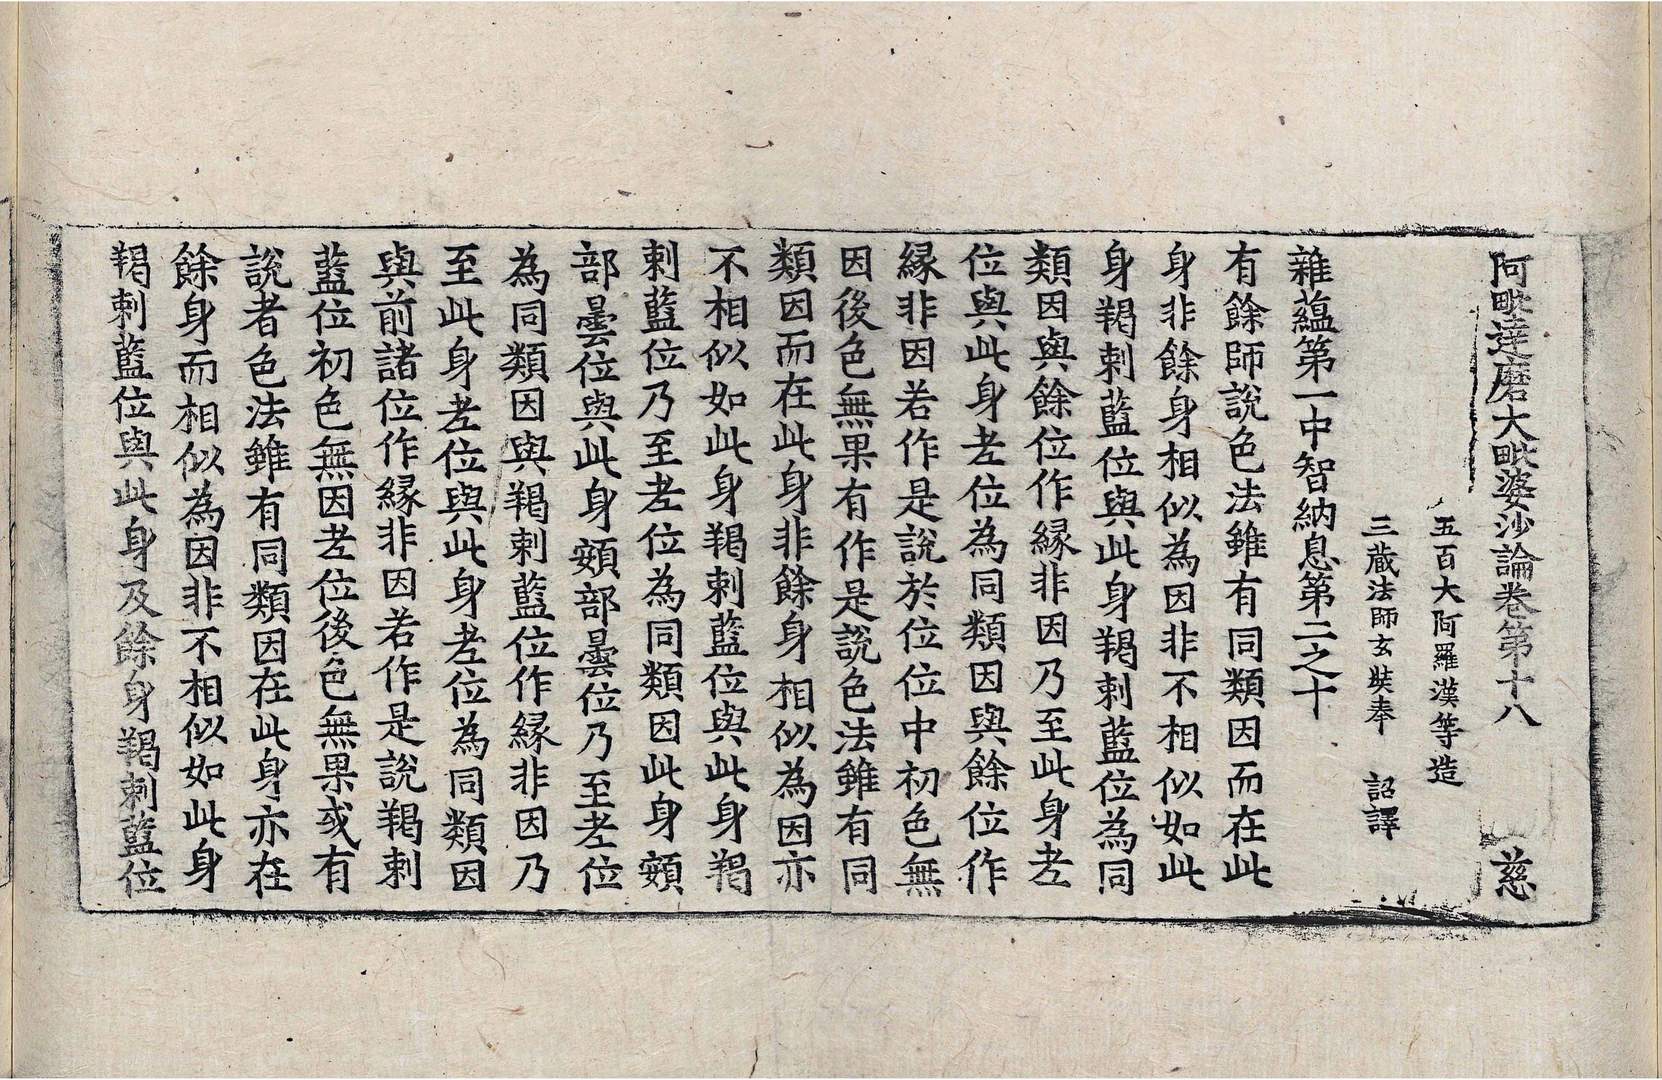 阿毗達磨大毗婆沙論卷第十八 慈
五百大阿羅漢等造
三蔵法師玄奘奉 詔譯
雜蘊第一中智納息第二之十
有餘師說色法雖有同類因而在此
身非餘身相似為因非不相似如此
身羯剌藍位與此身羯剌藍位為同
類因與餘位作縁非因乃至此身老
位與此身老位為同類因與餘位作
縁非因若作是説於位位中初色無
因後色無果有作是説色法雖有同
類因而在此身非餘身相似為因亦
不相似如此身羯剌藍位與此身羯
剌藍位乃至老位為同類因此身頞
部曇位與此身頞部曇位乃至老位
為同類因與羯剌藍位作縁非因乃
至此身老位與此身老位為同類因
與前諸位作縁非因若作是説羯剌
藍位初色無因老位後色無果或有
說者色法雖有同類因在此身亦在
餘身而相似為因非不相似如此身
羯剌藍位與此身及餘身羯剌藍位